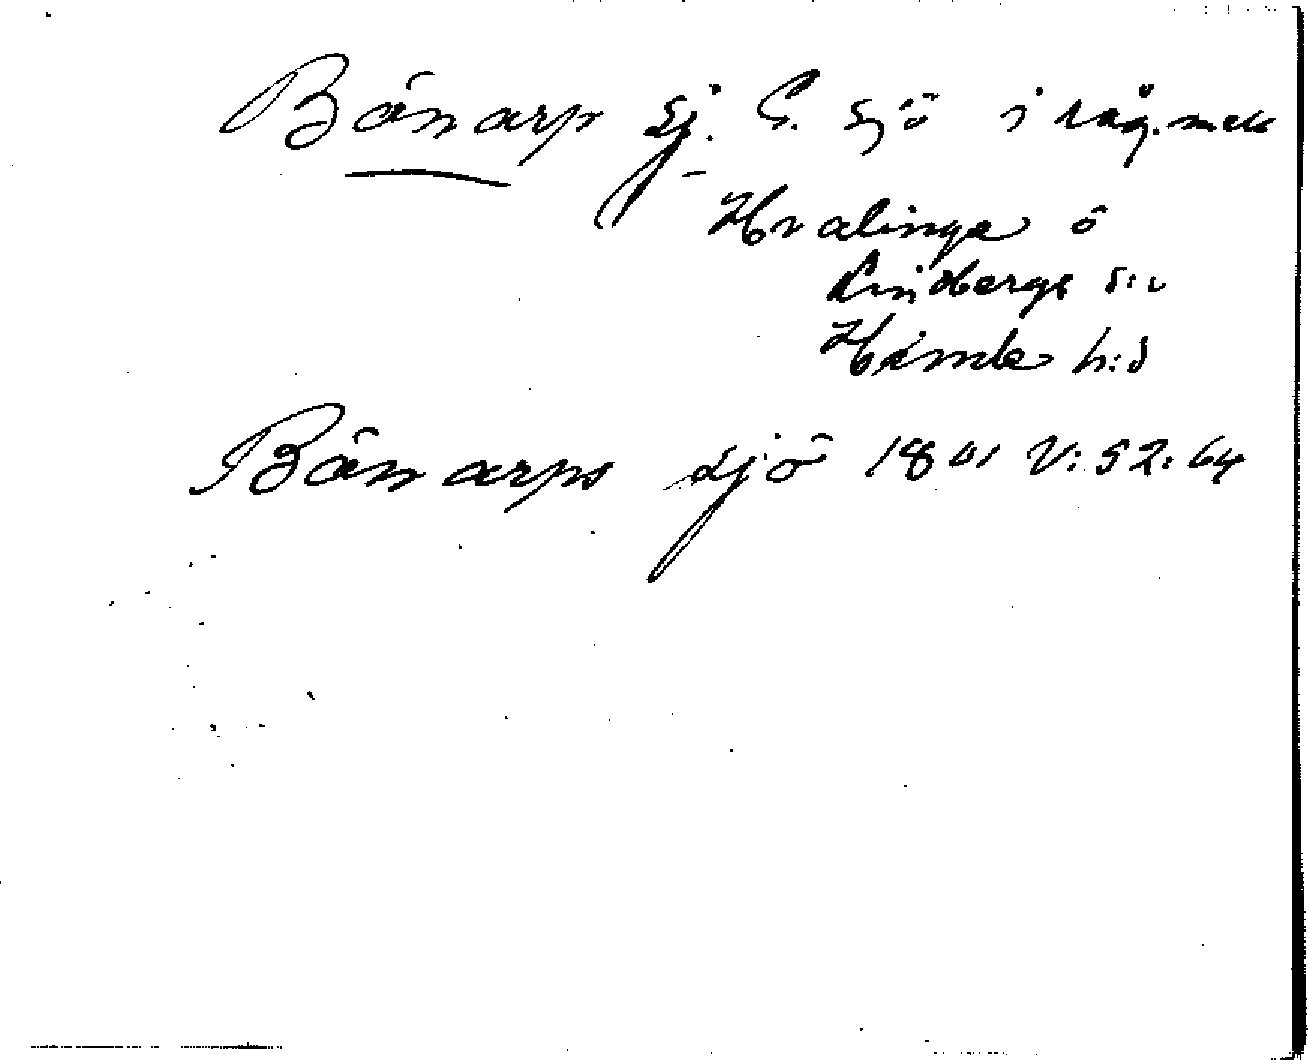 Bönarp sj. G. sjö i råg. mell
Hvalinge o
Lindbergs s:r
Himle h:d
Bönarps sjö 1801 V:52:64